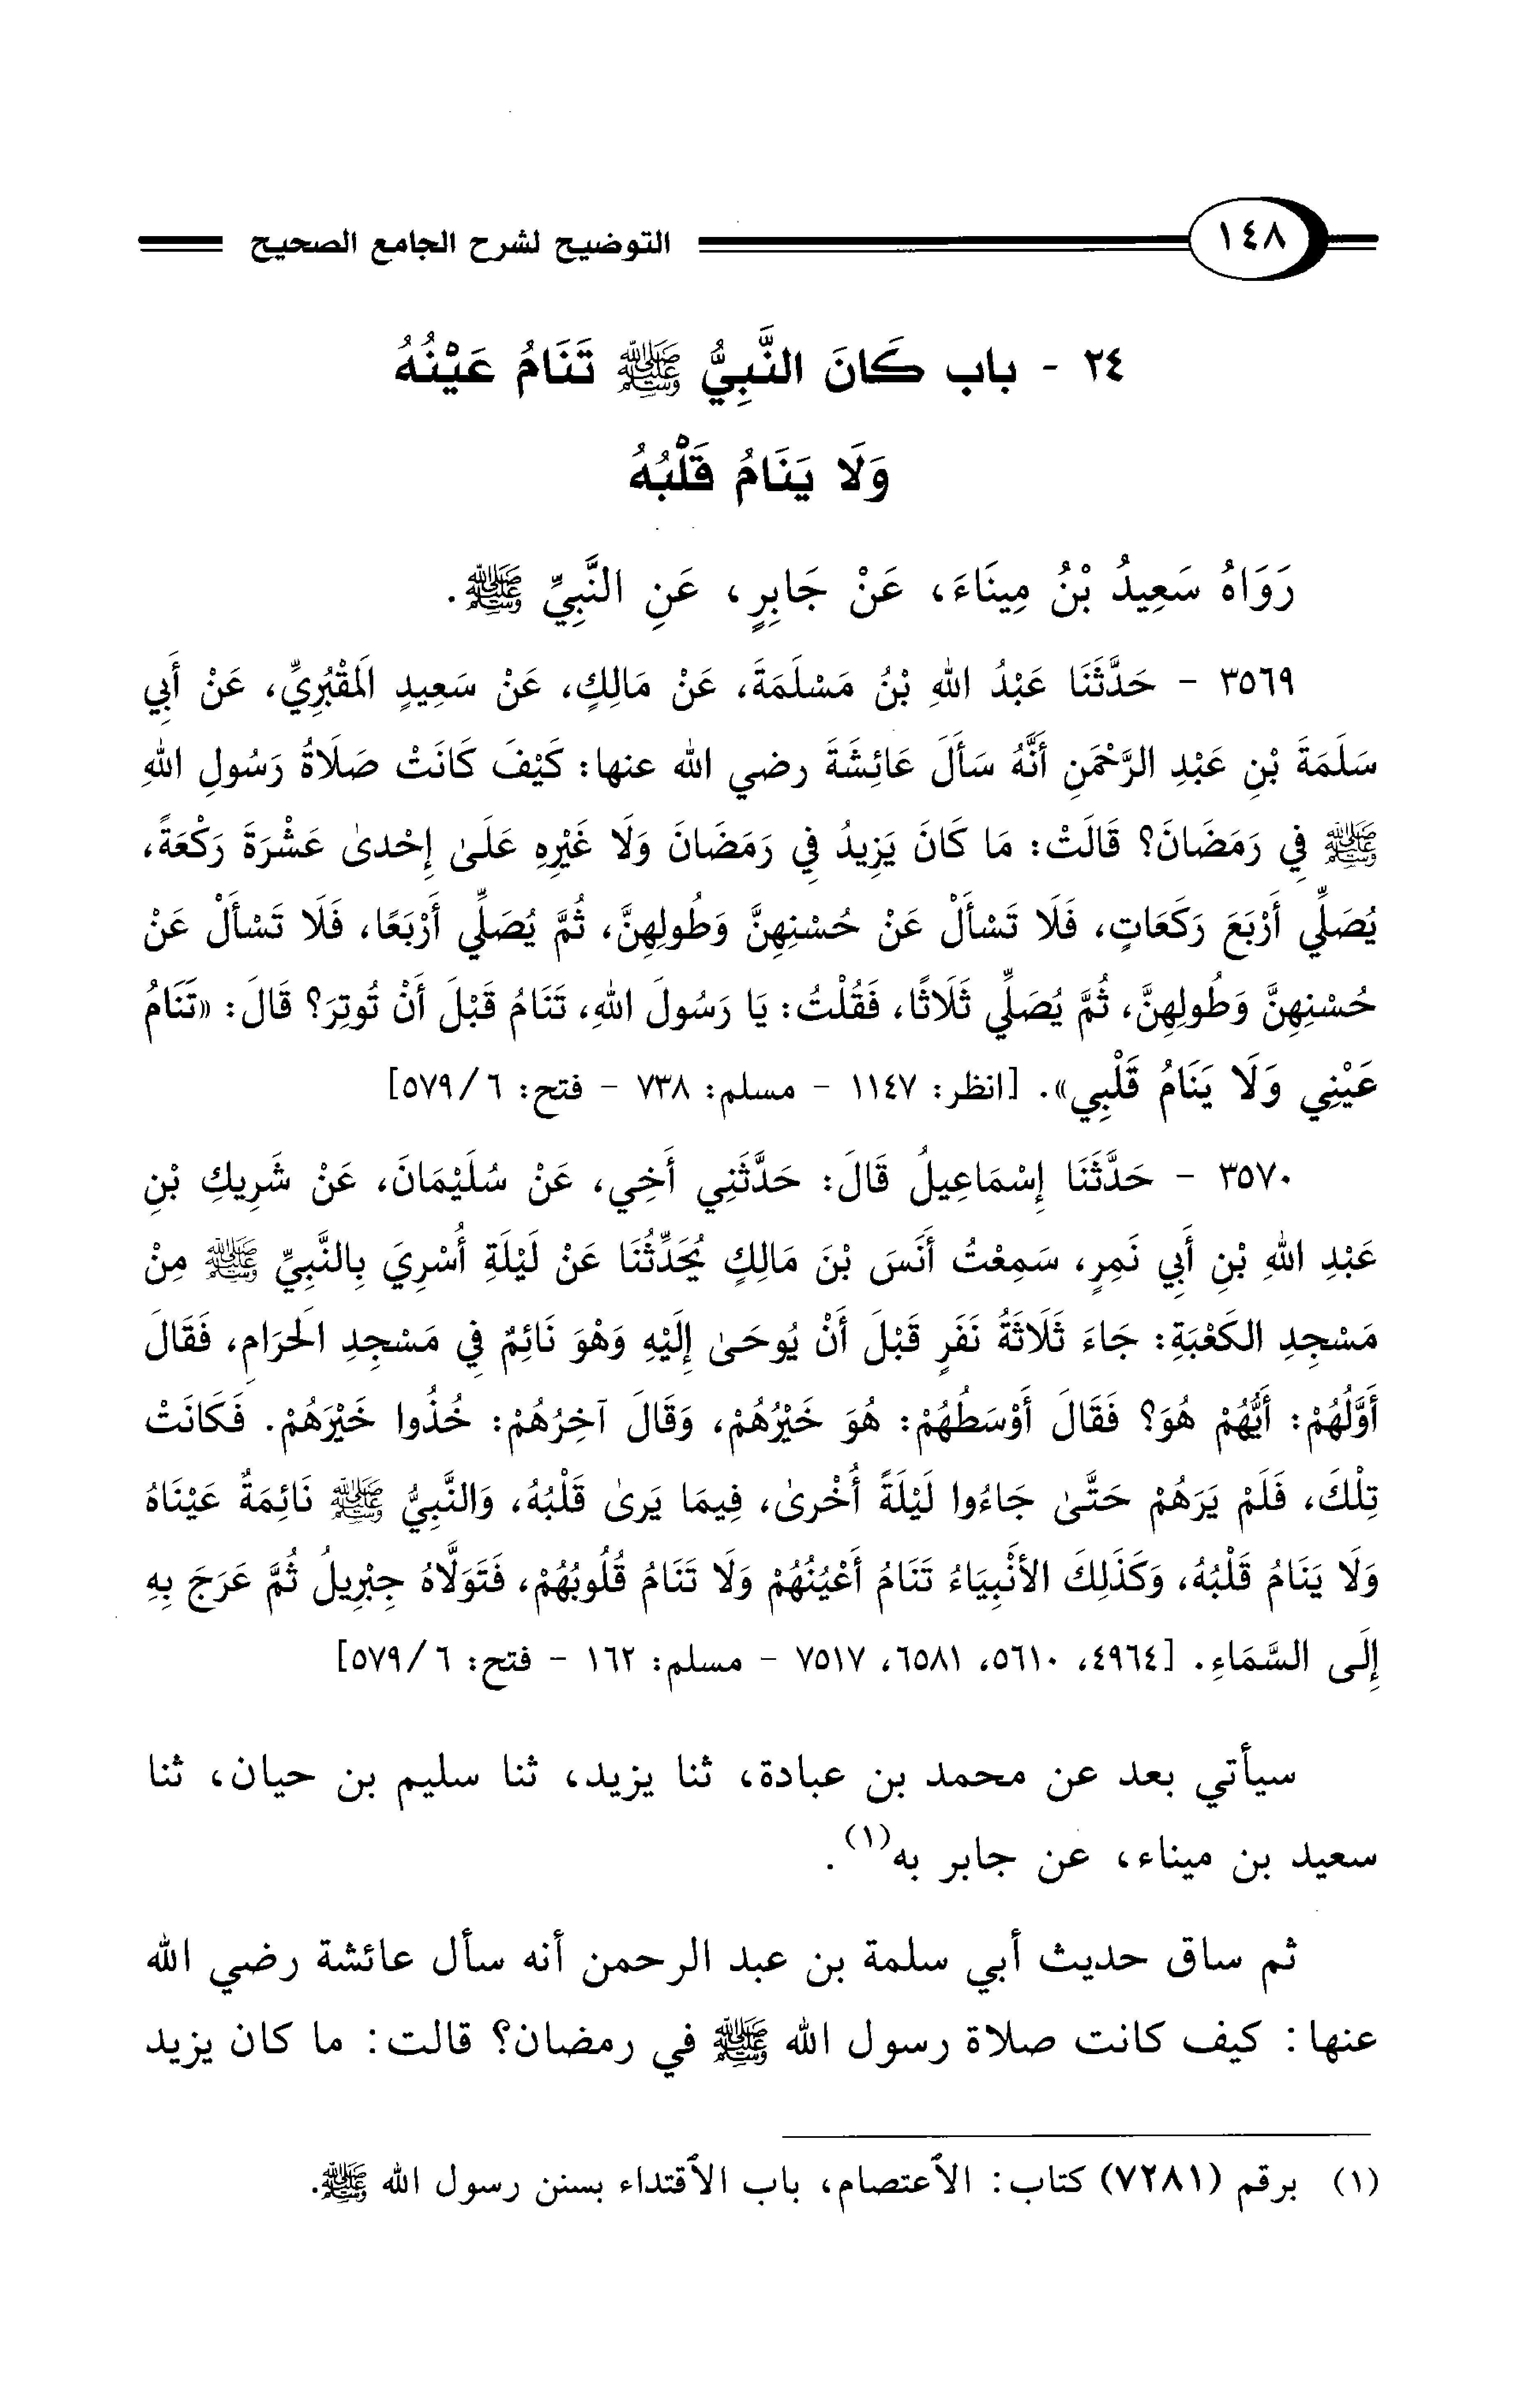 ١٤٨ التوضيح لشرح الجامع الصحيح
٢٤ - باب كَانَ النَّبِيُّ ﷺ تَنَامُ عَيْنُهُ
وَلَا يَنَامُ قَلْبُهُ
رَوَاهُ سَعِيدُ بْنُ مِينَاءَ، عَنْ جَابِرٍ، عَنِ النَّبِيِّ ﷺ.
٣٥٦٩ - حَدَّثَنَا عَبْدُ اللهِ بْنُ مَسْلَمَةَ، عَنْ مَالِكٍ، عَنْ سَعِيدٍ الَمقْبُرِيِّ، عَنْ أَبِي
سَلَمَةَ بْنِ عَبْدِ الرَّحْمَنِ أَنَّهُ سَأَلَ عَائِشَةَ رضي الله عنها: كَيْفَ كَانَتْ صَلَاةُ رَسُولِ اللهِ
ﷺ فِي رَمَضَانَ؟ قَالَتْ: مَا كَانَ يَزِيدُ فِي رَمَضَانَ وَلَا غَيْرِهِ عَلَىٰ إِحْدىٰ عَشْرَةَ رَكْعَةً،
يُصَلِّي أَرْبَعَ رَكَعَاتٍ، فَلَا تَسْأَلْ عَنْ حُسْنِهِنَّ وَطُولِهِنَّ، ثُمَّ يُصَلِّي أَرْبَعًا، فَلَا تَسْأَلْ عَنْ
حُسْنِهِنَّ وَطُولِهِنَّ، ثُمَّ يُصَلِّي ثَلَاثًا، فَقُلْتُ: يَا رَسُولَ اللهِ، تَنَامُ قَبْلَ أَنْ تُوتِرَ؟ قَالَ: «تَنَامُ
عَيْنِي وَلَا يَنَامُ قَلْبِي». [انظر: ١١٤٧ - مسلم: ٧٣٨ - فتح: ٥٧٩/٦]
٣٥٧٠ - حَدَّثَنَا إِسْمَاعِيلُ قَالَ: حَدَّثَنِي أَخِي، عَنْ سُلَيْمَانَ، عَنْ شَرِيكِ بْنِ
عَبْدِ اللهِ بْنِ أَبِي نَمِرٍ، سَمِعْتُ أَنَسَ بْنَ مَالِكٍ يُحَدِّثُنَا عَنْ لَيْلَةِ أُسْرِيَ بِالنَّبِيِّ ﷺ مِنْ
مَسْجِدِ الكَعْبَةِ: جَاءَ ثَلَاثَةُ نَفَرٍ قَبْلَ أَنْ يُوحَىٰ إِلَيْهِ وَهْوَ نَائِمٌ فِي مَسْجِدِ الَحرَامِ، فَقَالَ
أَوَّلُهُمْ: أَيُّهُمْ هُوَ؟ فَقَالَ أَوْسَطُهُمْ: هُوَ خَيْرُهُمْ، وَقَالَ آخِرُهُمْ: خُذُوا خَيْرَهُمْ. فَكَانَتْ
تِلْكَ، فَلَمْ يَرَهُمْ حَتَّىٰ جَاءُوا لَيْلَةً أُخْرىٰ، فِيمَا يَرىٰ قَلْبُهُ، وَالنَّبِيُّ ﷺ نَائِمَةٌ عَيْنَاهُ
وَلَا يَنَامُ قَلْبُهُ، وَكَذَلِكَ الأَنْبِيَاءُ تَنَامُ أَعْيُنُهُمْ وَلَا تَنَامُ قُلُوبُهُمْ، فَتَوَلَّاهُ جِبْرِيلُ ثُمَّ عَرَجَ بِهِ
إِلَى السَّمَاءِ. [٤٩٦٤، ٥٦١٠، ٦٥٨١، ٧٥١٧ - مسلم: ١٦٢ - فتح: ٥٧٩/٦]
سيأتي بعد عن محمد بن عبادة، ثنا يزيد، ثنا سليم بن حيان، ثنا
سعيد بن ميناء، عن جابر به(١).
ثم ساق حديث أبي سلمة بن عبد الرحمن أنه سأل عائشة رضي الله
عنها: كيف كانت صلاة رسول الله ﷺ في رمضان؟ قالت: ما كان يزيد
(١) برقم (٧٢٨١) كتاب: الأعتصام، باب الأقتداء بسنن رسول الله ﷺ.